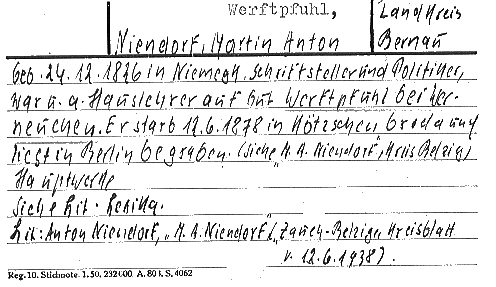 Werftpfuhl, Landkreis
Niendorf, Martin Anton Bernau
Geb. 24.12.1826 in Niemegk, Schriftsteller und Politiker,
war u. a. Hauslehrer auf Gut Werftpfuhl bei Wer-
neuchen. Er starb 12.6.1878 in und
liegt in Berlin begraben. (Siehe „M. A. Niendorf", Kreis Belzig)
Hauptwerke
Siehe Lit. Lexika.
Lit: Anton Niendorf, „M. A. Niendorf" (Zauch-Belziger Kreisblatt
v. 12.6.1938).
Reg. 10. Stichnote. 1.50. 232000. A. 80 k. S. 4062